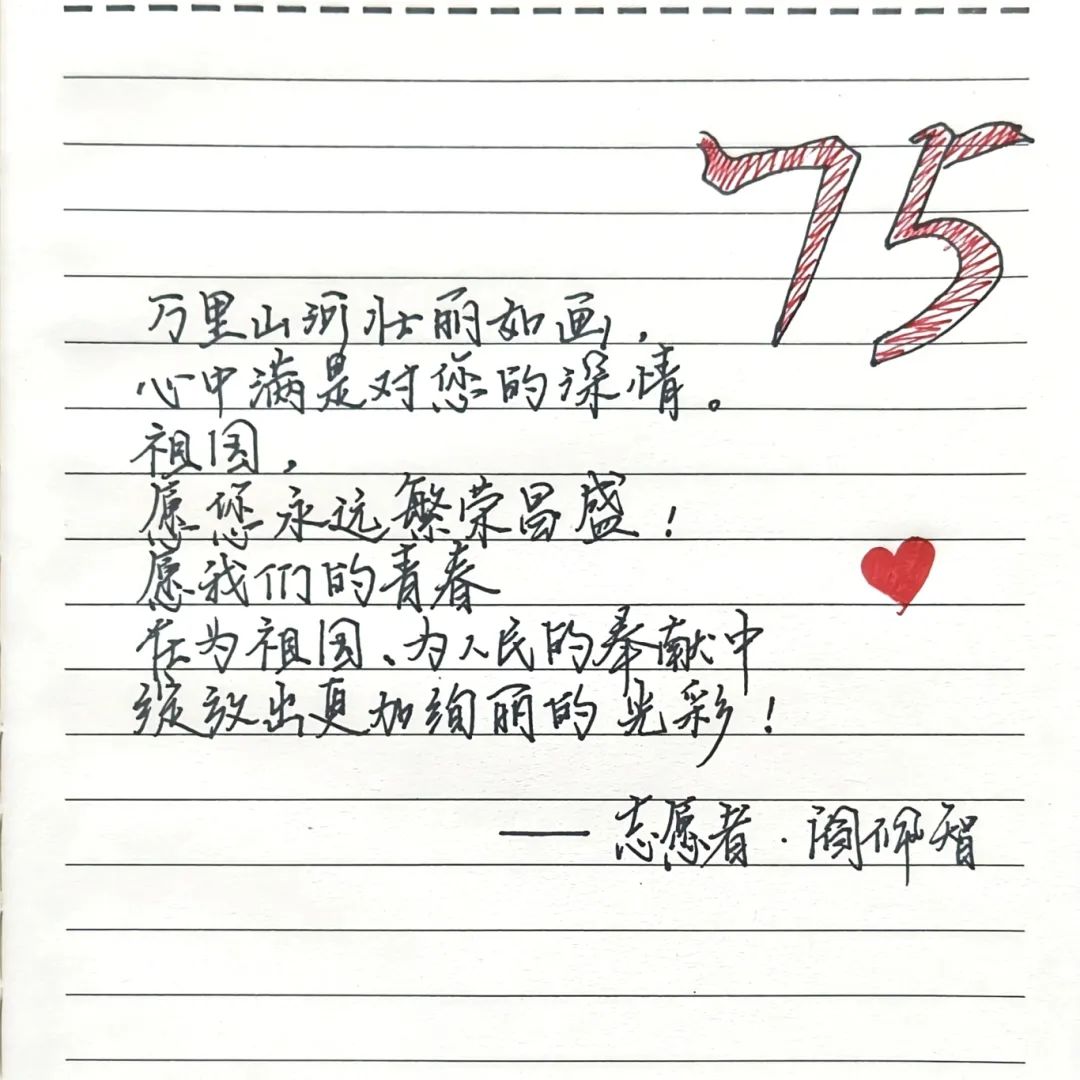 75
万里山河壮丽如画，
心中满是对您的深情。
祖国，
愿您永远繁荣昌盛！
愿我们的青春
在为祖国、为人民的奉献中
绽放出更加绚丽的光彩！
——志愿者·阎仰智